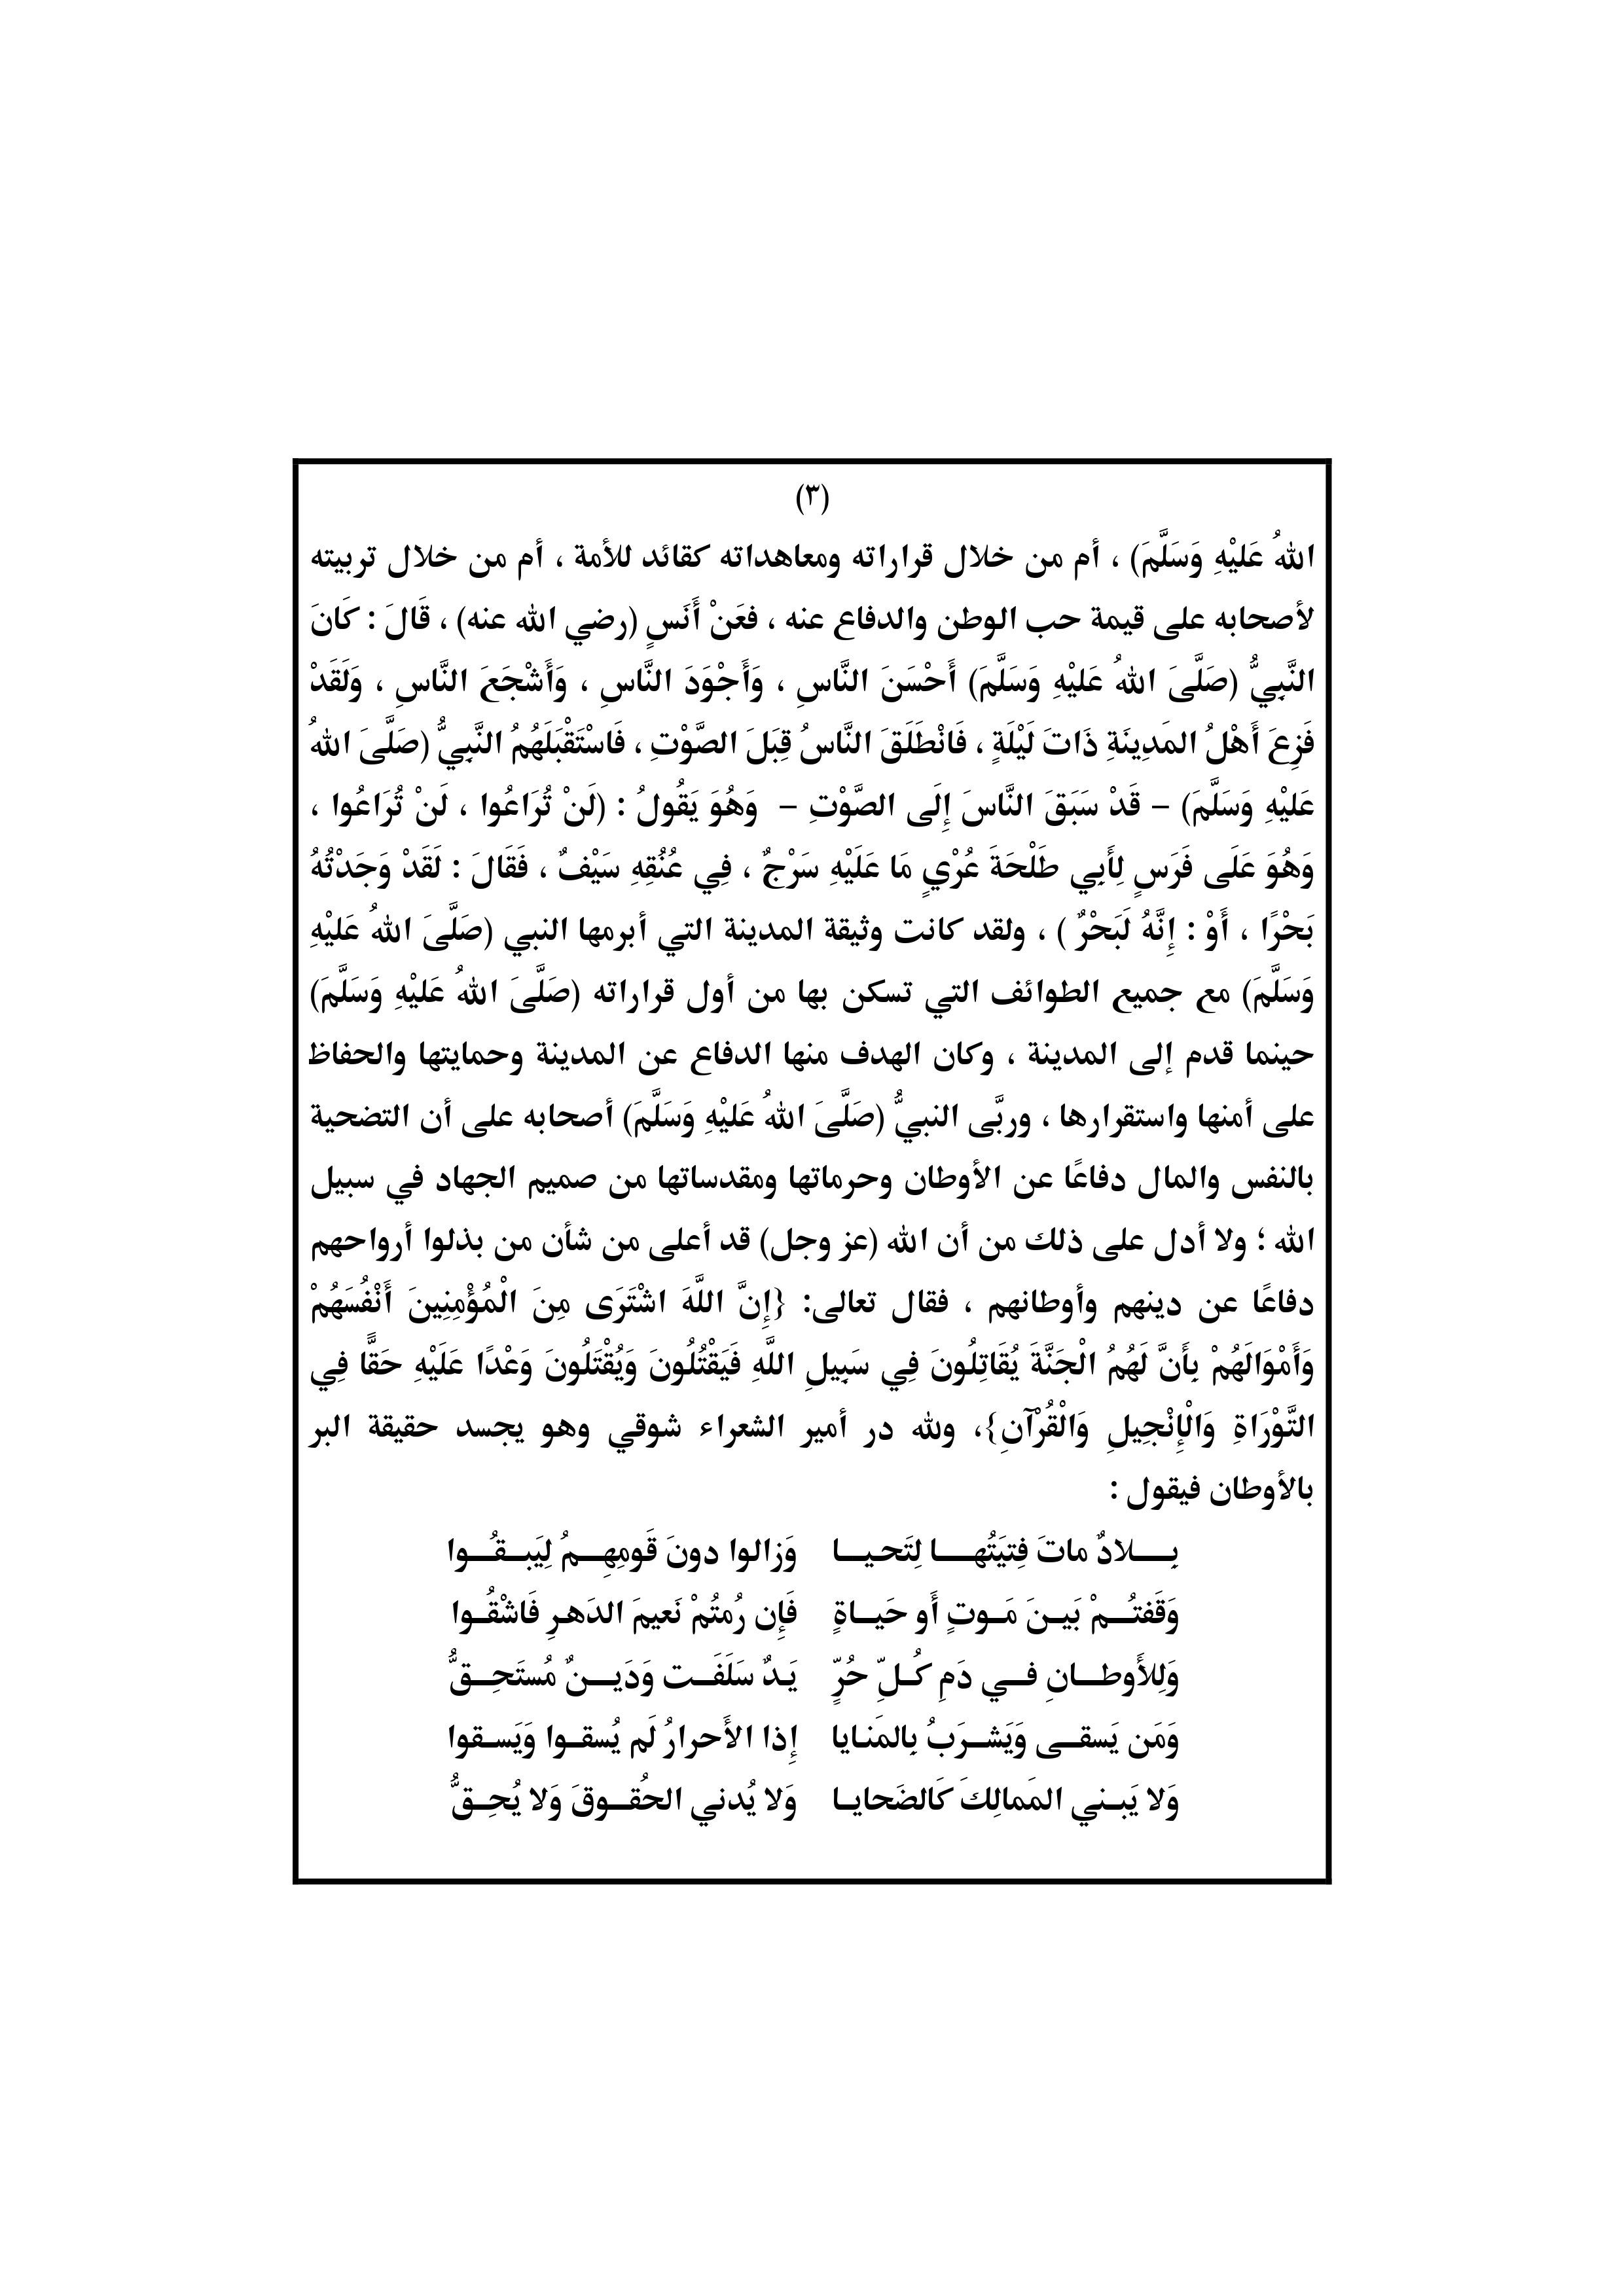 (٣)
اللهُ عَليْهِ وَسَلَّمَ) ، أم من خلال قراراته ومعاهداته كقائد للأمة ، أم من خلال تربيته
لأصحابه على قيمة حب الوطن والدفاع عنه ، فعَنْ أَنَسٍ (رضي الله عنه) ، قَالَ : كَانَ
النَّبِيُّ (صَلَّىَ اللهُ عَليْهِ وَسَلَّمَ) أَحْسَنَ النَّاسِ ، وَأَجْوَدَ النَّاسِ ، وَأَشْجَعَ النَّاسِ ، وَلَقَدْ
فَزِعَ أَهْلُ المَدِينَةِ ذَاتَ لَيْلَةٍ ، فَانْطَلَقَ النَّاسُ قِبَلَ الصَّوْتِ ، فَاسْتَقْبَلَهُمُ النَّبِيُّ (صَلَّىَ اللهُ
عَليْهِ وَسَلَّمَ) – قَدْ سَبَقَ النَّاسَ إِلَى الصَّوْتِ – وَهُوَ يَقُولُ : (لَنْ تُرَاعُوا ، لَنْ تُرَاعُوا ،
وَهُوَ عَلَى فَرَسٍ لِأَبِي طَلْحَةَ عُرْيٍ مَا عَلَيْهِ سَرْجٌ ، فِي عُنُقِهِ سَيْفٌ ، فَقَالَ : لَقَدْ وَجَدْتُهُ
بَحْرًا ، أَوْ : إِنَّهُ لَبَحْرٌ ) ، ولقد كانت وثيقة المدينة التي أبرمها النبي (صَلَّىَ اللهُ عَليْهِ
وَسَلَّمَ) مع جميع الطوائف التي تسكن بها من أول قراراته (صَلَّىَ اللهُ عَليْهِ وَسَلَّمَ)
حينما قدم إلى المدينة ، وكان الهدف منها الدفاع عن المدينة وحمايتها والحفاظ
على أمنها واستقرارها ، وربَّى النبيُّ (صَلَّىَ اللهُ عَليْهِ وَسَلَّمَ) أصحابه على أن التضحية
بالنفس والمال دفاعًا عن الأوطان وحرماتها ومقدساتها من صميم الجهاد في سبيل
الله ؛ ولا أدل على ذلك من أن الله (عز وجل) قد أعلى من شأن من بذلوا أرواحهم
دفاعًا عن دينهم وأوطانهم ، فقال تعالى: {إِنَّ اللَّهَ اشْتَرَى مِنَ الْمُؤْمِنِينَ أَنْفُسَهُمْ
وَأَمْوَالَهُمْ بِأَنَّ لَهُمُ الْجَنَّةَ يُقَاتِلُونَ فِي سَبِيلِ اللَّهِ فَيَقْتُلُونَ وَيُقْتَلُونَ وَعْدًا عَلَيْهِ حَقًّا فِي
التَّوْرَاةِ وَالْإِنْجِيلِ وَالْقُرْآنِ}، ولله در أمير الشعراء شوقي وهو يجسد حقيقة البر
بالأوطان فيقول :
بِـــلادٌ ماتَ فِتيَتُهـــا لِتَحيــا وَزالوا دونَ قَومِهِــمُ لِيَبــقُــوا
وَقَفتُــمْ بَيـنَ مَـوتٍ أَو حَيــاةٍ فَإِن رُمتُمْ نَعيمَ الدَهـرِ فَاشْقُـوا
وَلِلأَوطــانِ فــي دَمِ كُـلِّ حُرٍّ يَـدٌ سَلَفَــت وَدَيــنٌ مُستَحِــقُّ
وَمَن يَسقــى وَيَشــرَبُ بِالمَنـايا إِذا الأَحرارُ لَم يُسقــوا وَيَسـقوا
وَلا يَبـني المَمالِكَ كَالضَحايـا وَلا يُدني الحُقــوقَ وَلا يُحِــقُّ